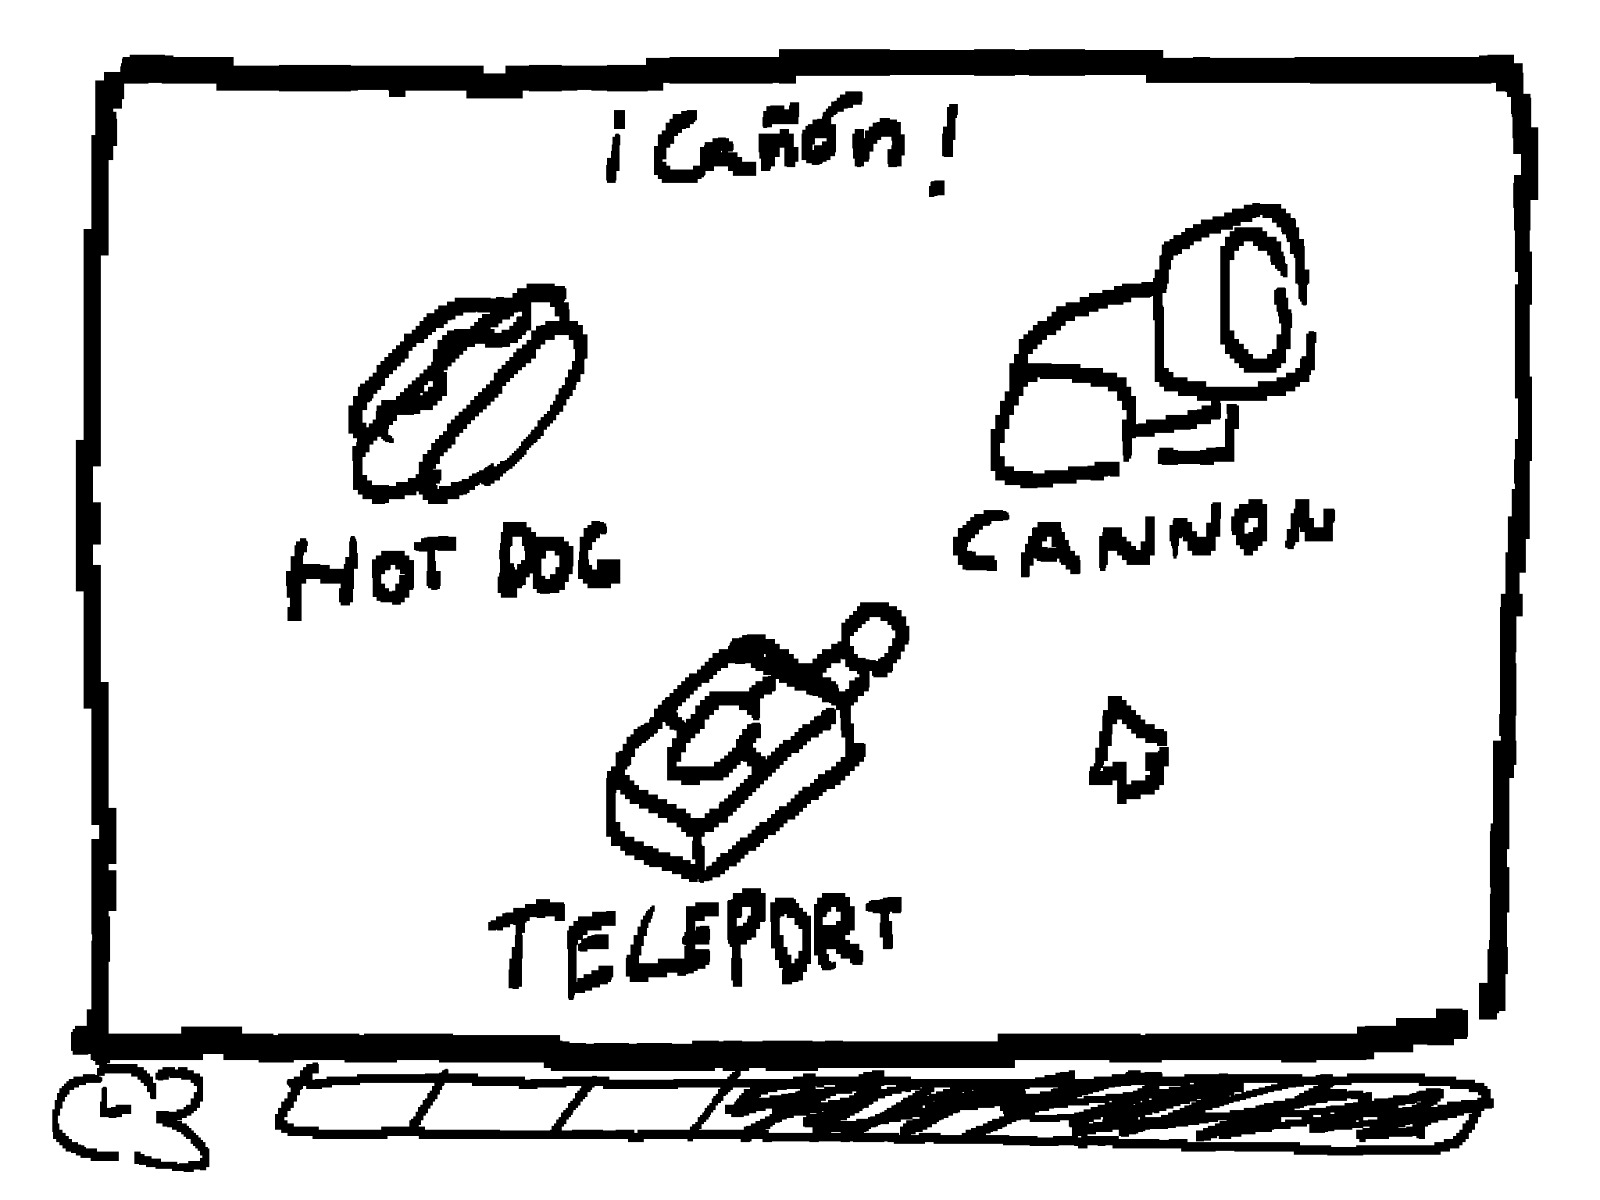 ¡Cañón!
HOT DOG
CANNON
TELEPORT
3